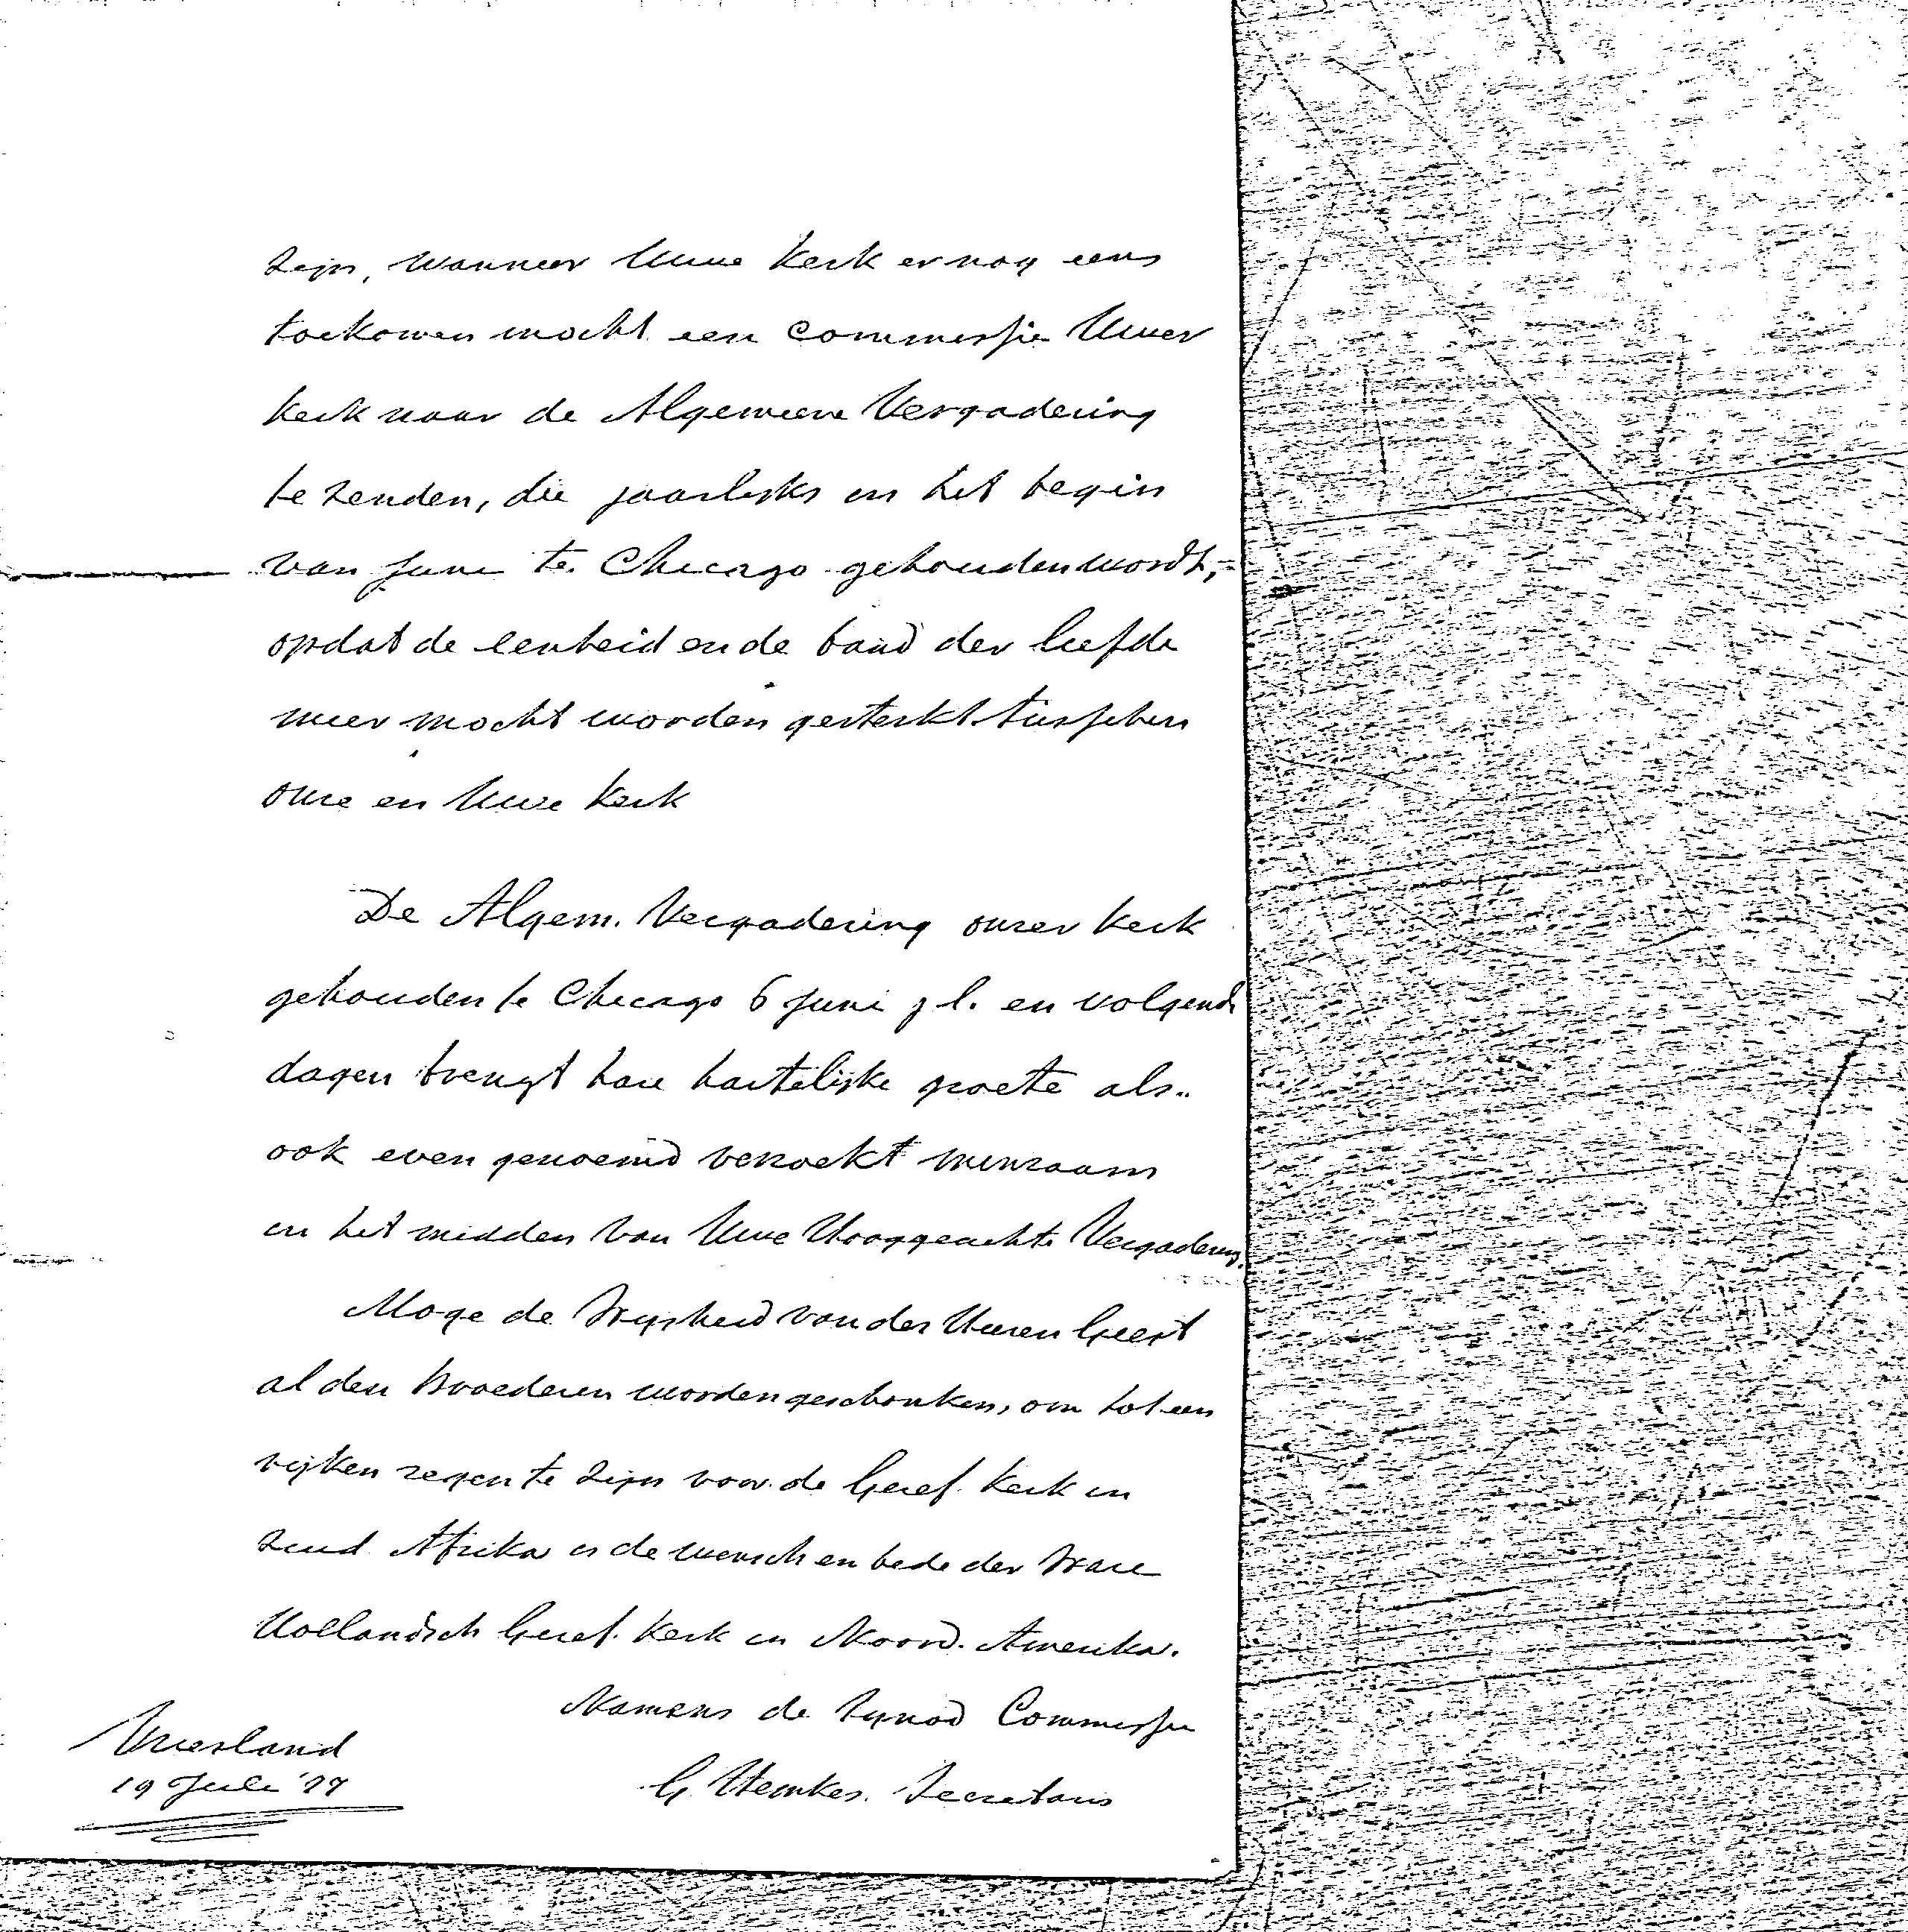 zijn, wanneer Uwe Kerk er nog eens
toekomen mocht een Commissie Uwer
Kerk naar de Algemeene Vergadering
te zenden, die jaarlijks in het begin
van Juni te Chicago gehouden wordt,
opdat de eenheid en de band der liefde
meer mocht worden gesterkt tusschen
onze en Uwe Kerk
De Algem. Vergadering onzer Kerk
gehouden te Chicago 6 Juni j l. en volgende
dagen brengt hare hartelijke groete als
ook even genoemd verzoekt minzaam
in het midden van Uwe Hooggeachte Vergadering.
Moge de Wijsheid van den Geest
al den Broederen worden geschonken, om tot een
rijken zegen te zijn voor de Geref. Kerk in
Zuid Afrika is de wensch en bede der Ware
Hollandsch Geref. Kerk in Noord. Amerika.
Namens de Synod Commissie
G. Hemkes. Secretaris
Vriesland
19 Juli '77